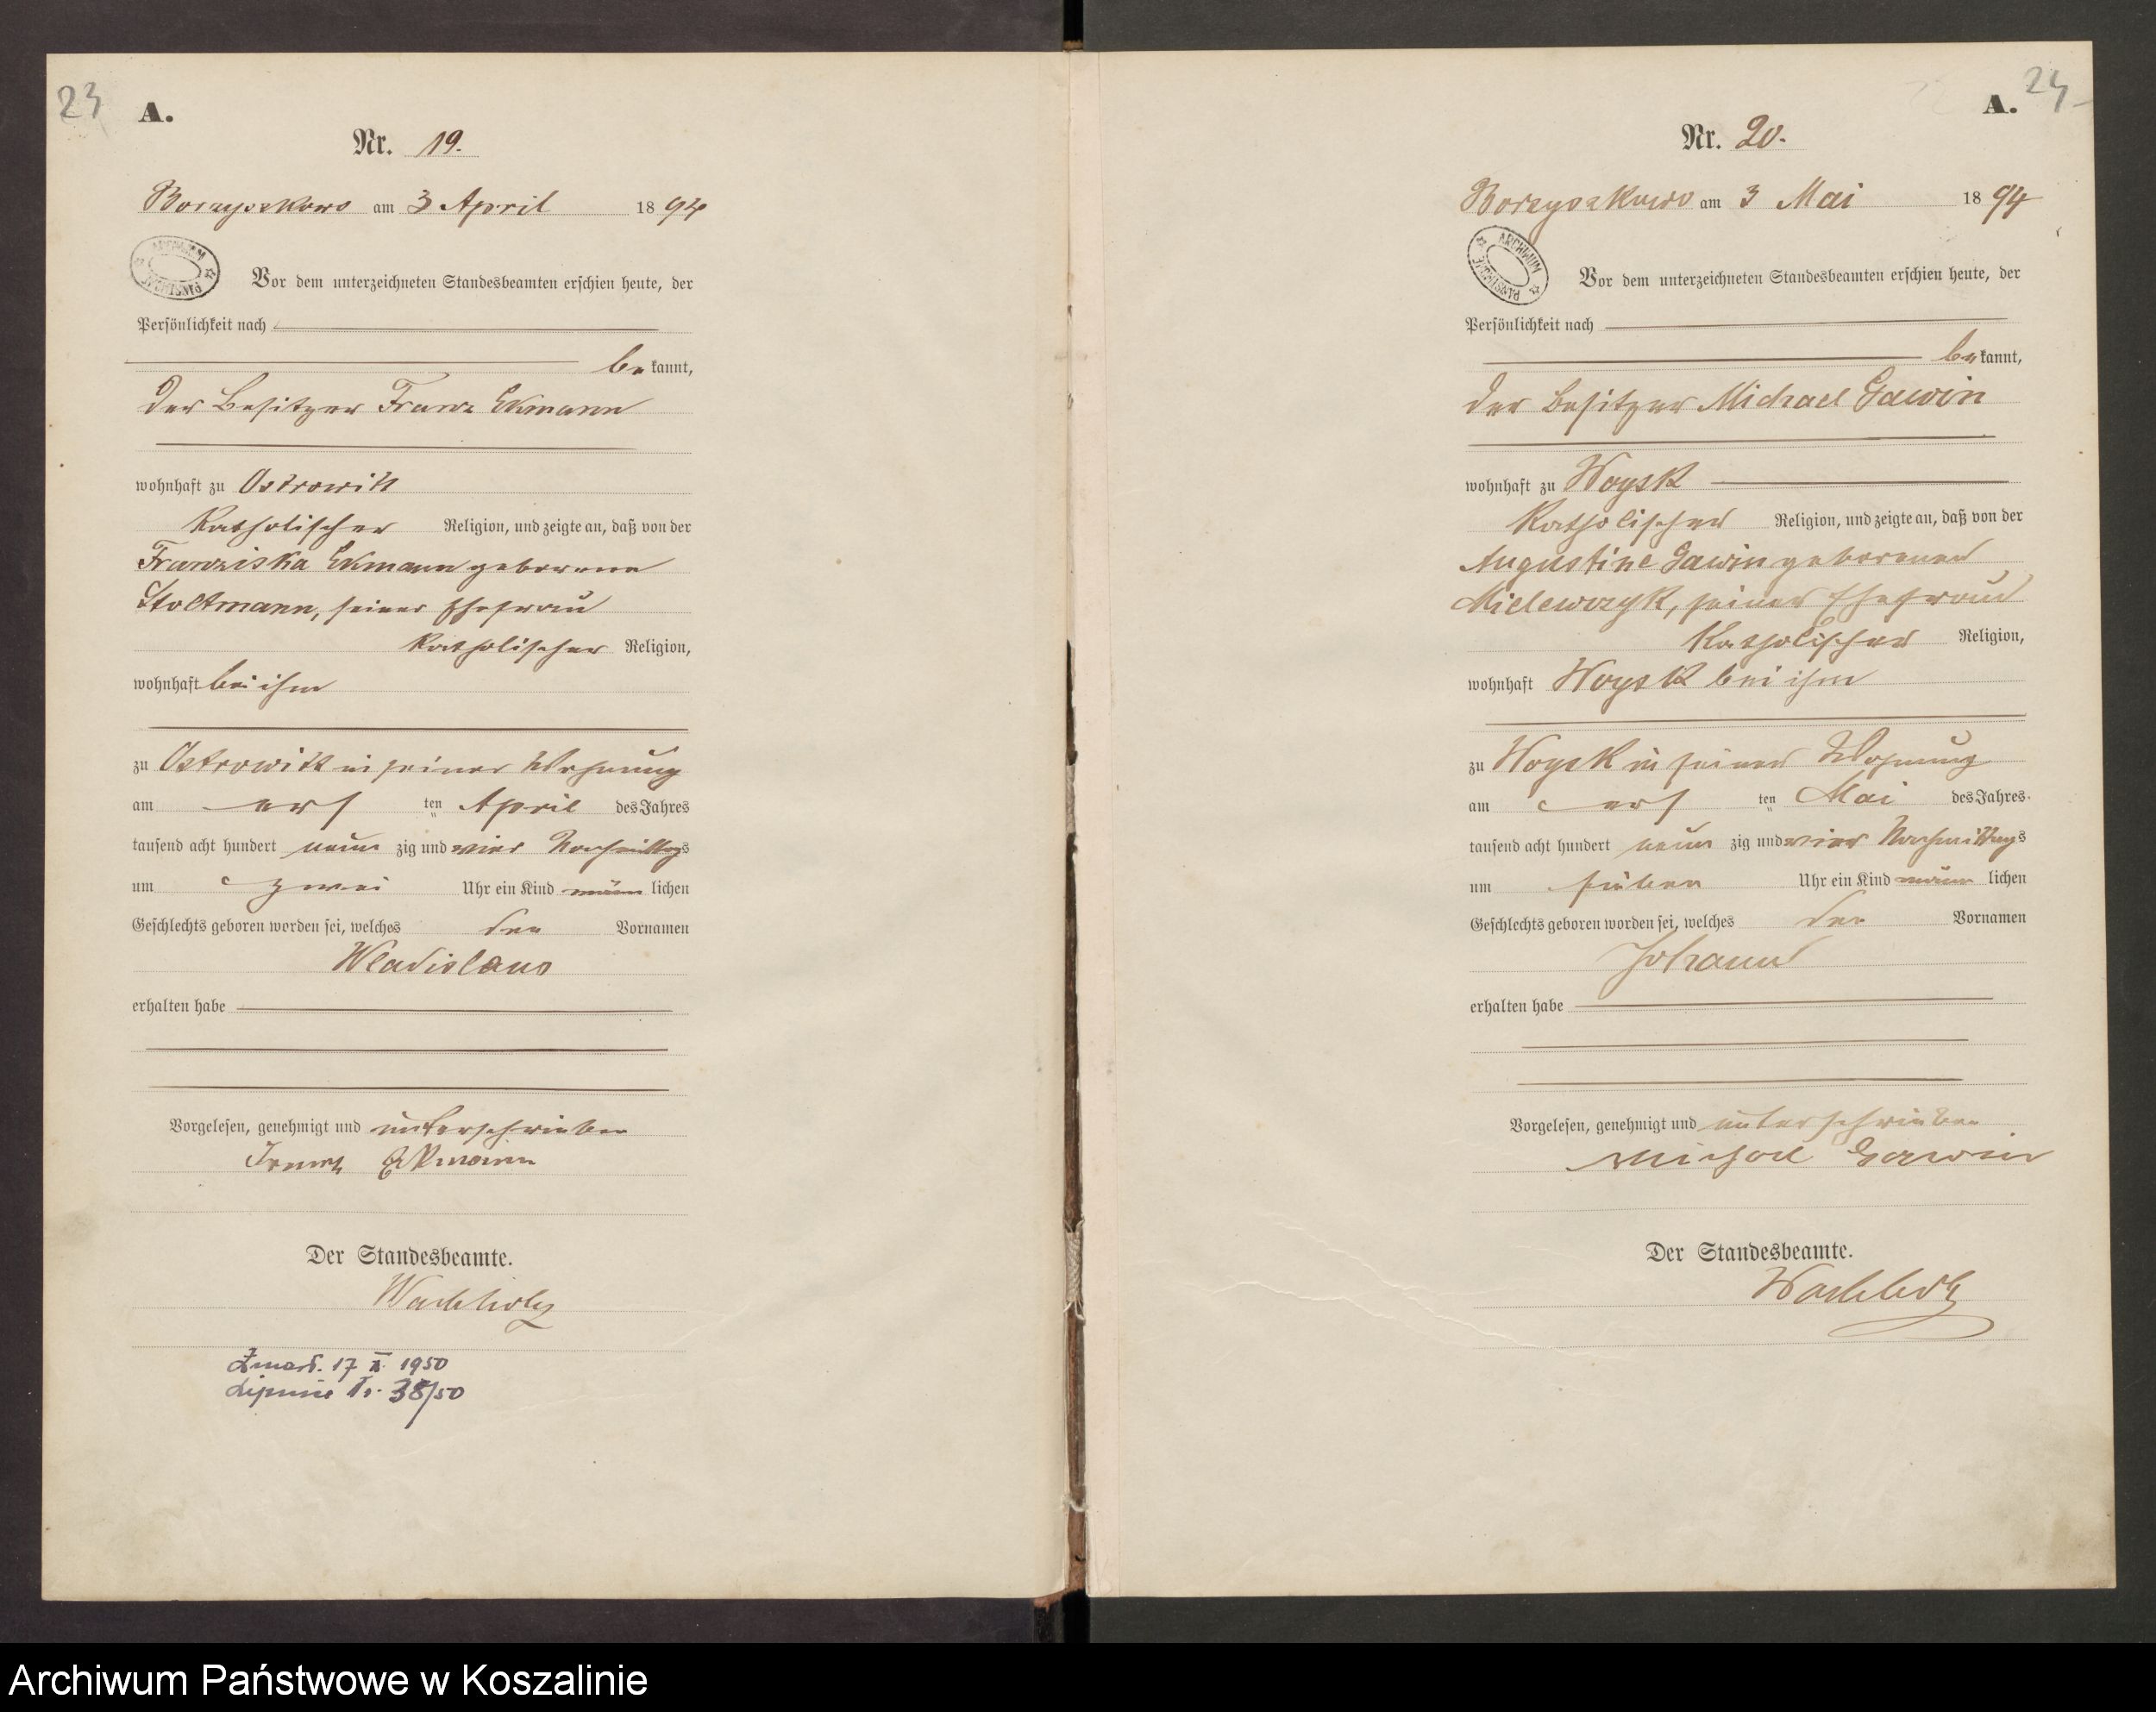 23
A.
Nr. 19.
Borzyszkowo am 3 April 1894
ARCHIWUM PAŃSTWOWE
Vor dem unterzeichneten Standesbeamten erschien heute, der
Persönlichkeit nach
be kannt,
der Besitzer Franz Ekmann
wohnhaft zu Ostrowitt
katholischer Religion, und zeigte an, daß von der
Franziska Ekmann geborene
Stoltmann, seiner Ehefrau
katholischer Religion,
wohnhaft bei ihm
zu Ostrowitt in seiner Wohnung
am ers ten April des Jahres
tausend acht hundert neun zig und vier Nachmittags
um zwei Uhr ein Kind männ lichen
Geschlechts geboren worden sei, welches den Vornamen
Wladislaus
erhalten habe
Vorgelesen, genehmigt und unterschrieben
Franz Ekmann
Der Standesbeamte.
Wachholz
Zmarł. 17 X. 1950
Lipnica 38/50
24
A.
Nr. 20.
Borzyszkowo am 3 Mai 1894
ARCHIWUM PAŃSTWOWE
Vor dem unterzeichneten Standesbeamten erschien heute, der
Persönlichkeit nach
be kannt,
der Besitzer Michael Gawin
wohnhaft zu Woysk
katholischer Religion, und zeigte an, daß von der
Augustine Gawin geborenen
Mielewczyk, seiner Ehefrau
katholischer Religion,
wohnhaft Woysk bei ihm
zu Woysk in seiner Wohnung
am ers ten Mai des Jahres
tausend acht hundert neun zig und vier Nachmittags
um sieben Uhr ein Kind männ lichen
Geschlechts geboren worden sei, welches den Vornamen
Johann
erhalten habe
Vorgelesen, genehmigt und unterschrieben
Michael Gawin
Der Standesbeamte.
Wachholz
Archiwum Państwowe w Koszalinie